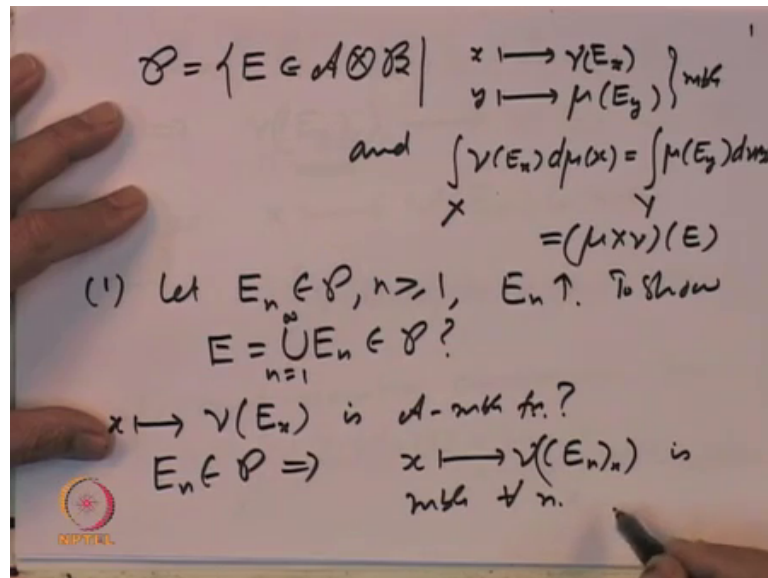 1
𝒫 = { E ∈ 𝒜 ⊗ ℬ | x ⟼ ν(E_x)
y ⟼ μ(E_y) } mble
and ∫_X ν(E_x) dμ(x) = ∫_Y μ(E_y) dν(y)
= (μ × ν)(E)
(1) Let E_n ∈ 𝒫, n ≥ 1, E_n ↑. To show
E = ⋃_{n=1}^∞ E_n ∈ 𝒫 ?
x ⟼ ν(E_x) is 𝒜-mble fn. ?
E_n ∈ 𝒫 ⇒ x ⟼ ν((E_n)_x) is
mble ∀ n.
NPTEL